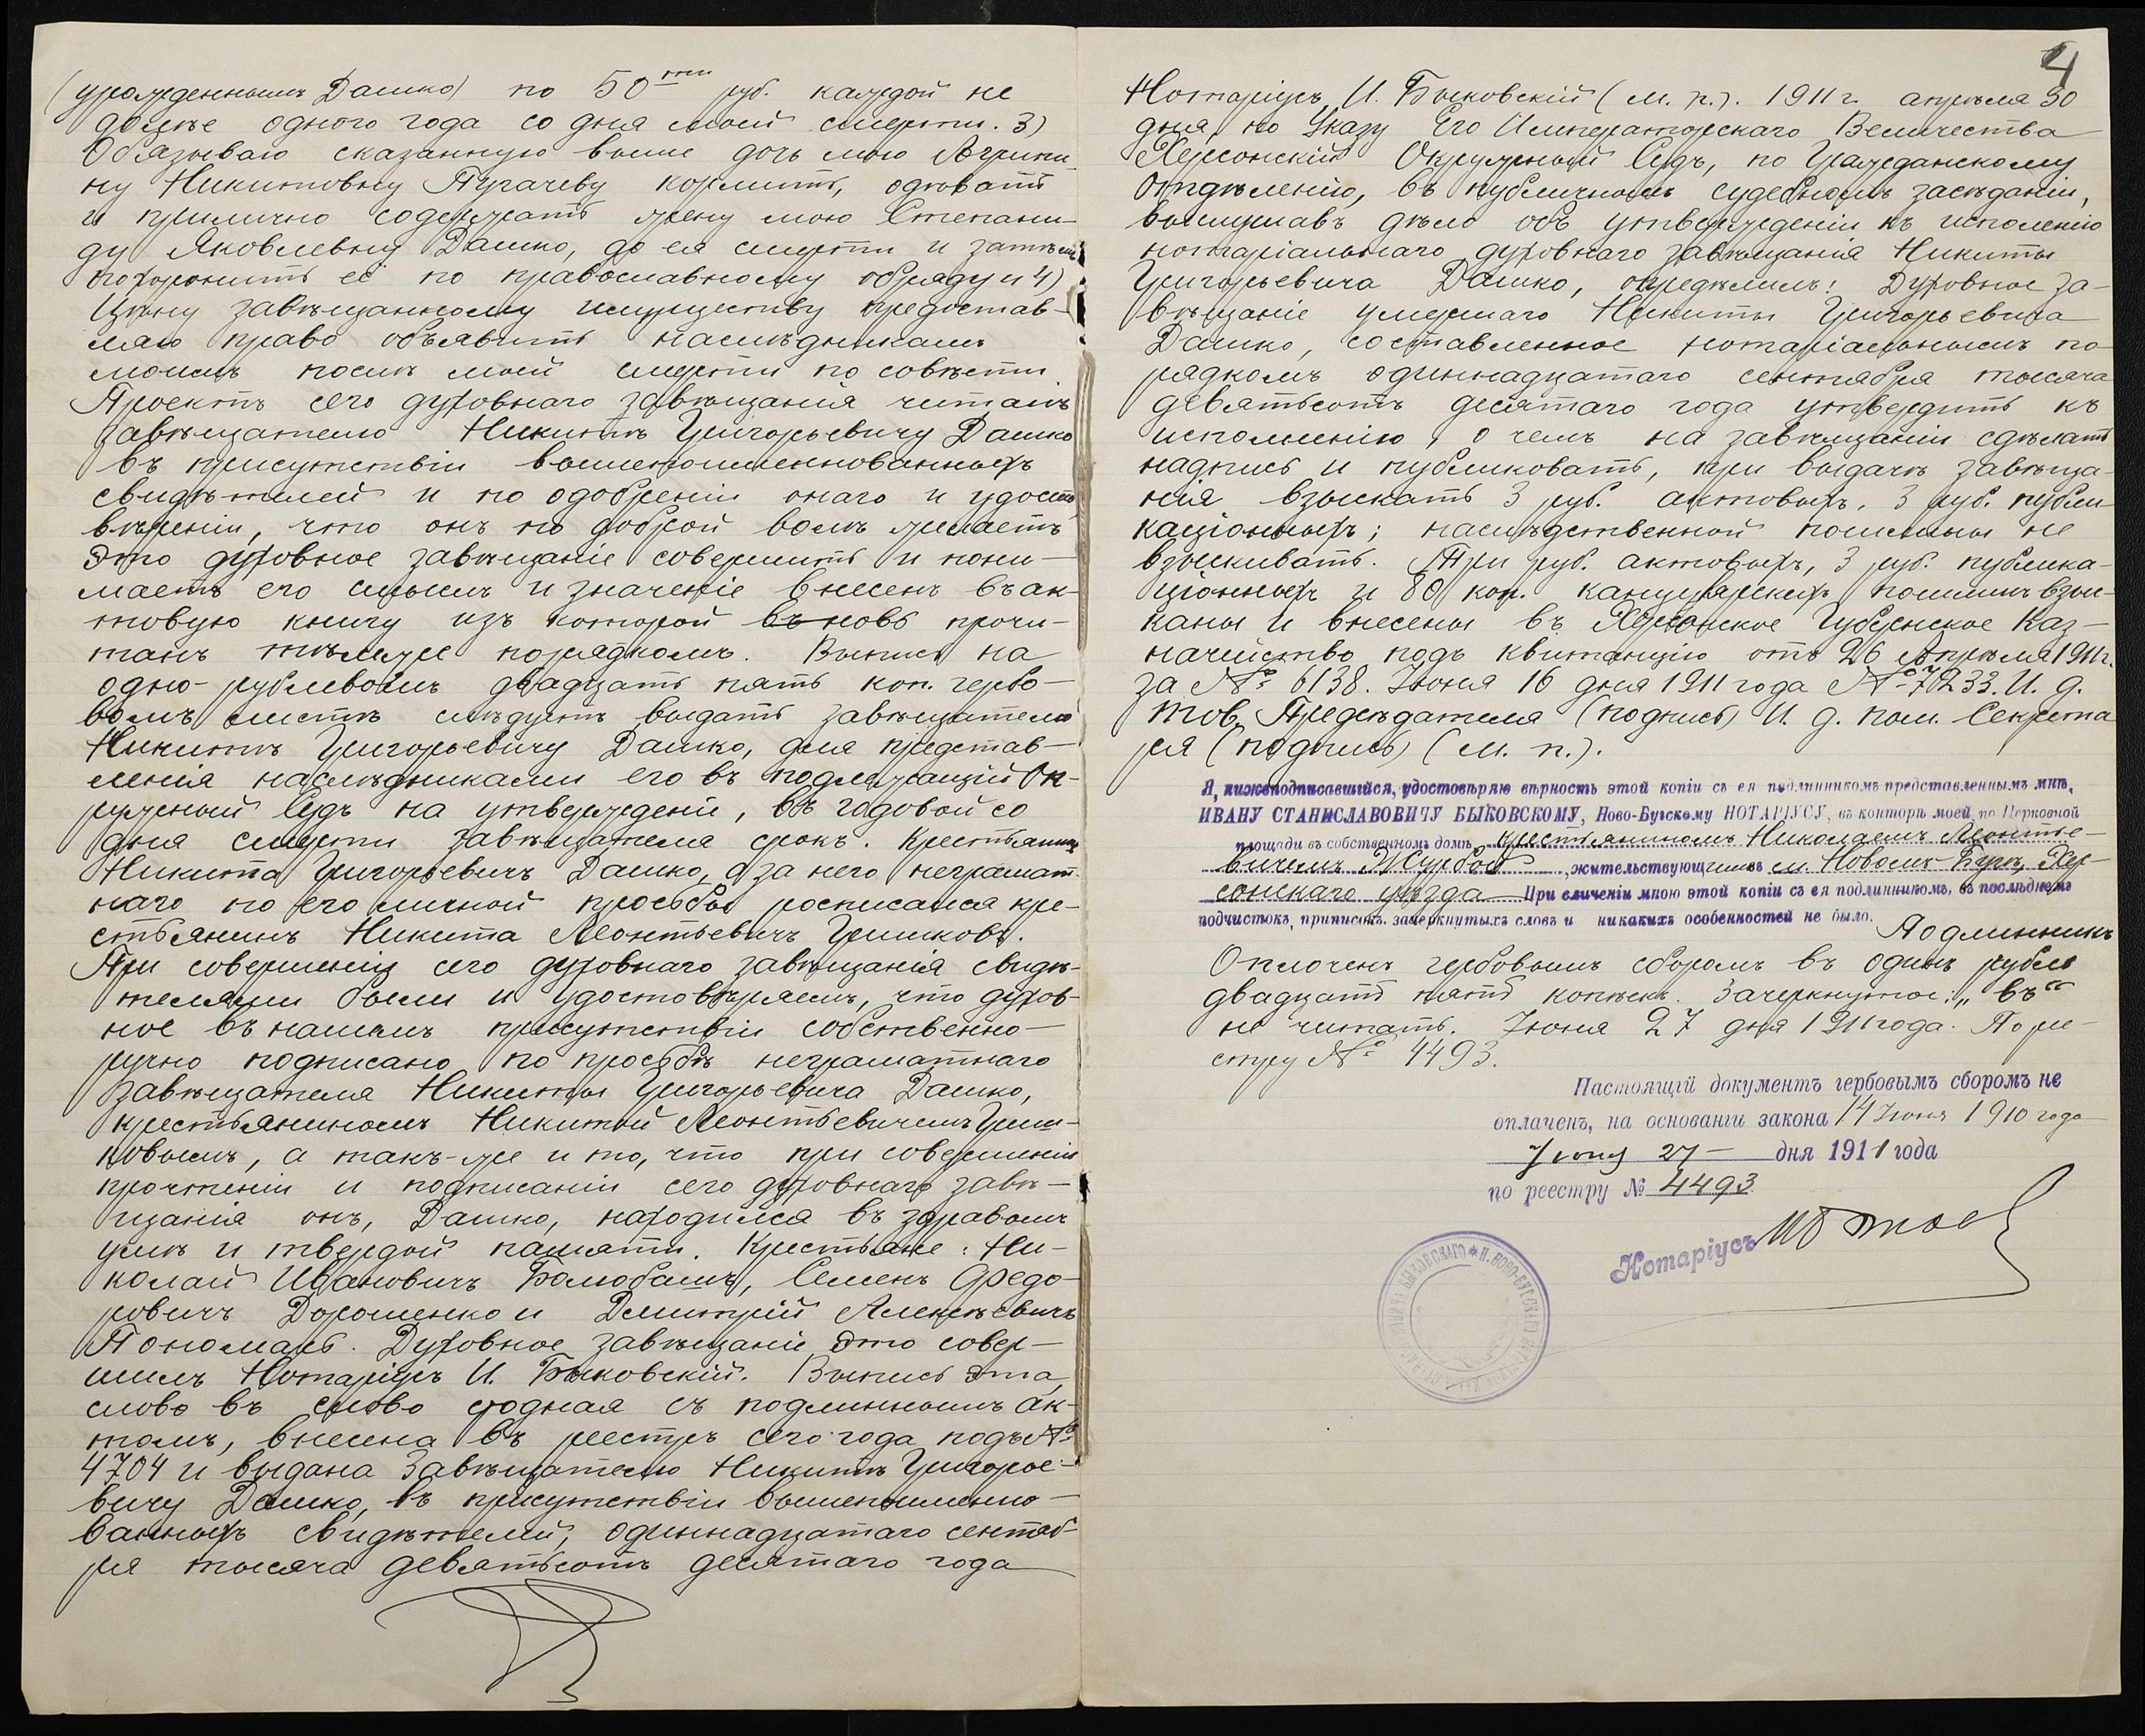 (урожденнымъ Дашко) по 50ти руб. каждой не
дальше одного года со дня моей смерти. 3)
Обязываю сказанную выше дочь мою Агрипи-
ну Никитовну Пугачеву кормить, одѣвать
и прилично содержать жену мою Степани-
ду Яковлевну Дашко, до ея смерти и затѣмъ
похоронить её по православному обряду и 4)
Цѣну завѣщанному имуществу предостав-
ляю право объявить наслѣдникамъ
моимъ послѣ моей смерти по совѣсти.
Проектъ сего духовнаго завѣщанія читанъ
завѣщателю Никитѣ Григорьевичу Дашко
въ присутствіи вышепоименнованныхъ
свидѣтелей и по одобреніи онаго и удосто-
вѣреніи, что онъ по доброй волѣ желаетъ
это духовное завѣщаніе совершить и пони-
маетъ его смыслъ и значеніе внесенъ въ ак-
товую книгу изъ которой въ новь прочи-
танъ тѣмъ же порядкомъ. Выпись на
одно-рублевомъ двадцать пять коп. гербо-
вомъ листѣ слѣдуетъ выдать завѣщателю
Никитѣ Григорьевичу Дашко, для представ-
ленія наслѣдниками его въ подлежащій Ок-
ружный Судъ на утвержденіе, въ годовой со
дня смерти завѣщателя срокъ. Крестьянинъ
Никита Григорьевичъ Дашко, а за него неграмат-
наго по его личной просьбѣ росписался кре-
стьянинъ Никита Леонтьевичъ Гришковъ.
При совершеніи сего духовнаго завѣщанія свидѣ-
телями были и удостовѣряемъ, что духов-
ное въ нашемъ присутствіи собственно-
ручно подписано по просьбѣ неграматнаго
завѣщателя Никиты Григорьевича Дашко,
крестьяниномъ Никитой Леонтьевичемъ Гриш-
ковымъ, а такъ-же и то, что при совершеніи
прочтеніи и подписаніи сего духовнаго завѣ-
щанія онъ, Дашко, находился въ здравомъ
умѣ и твердой памяти. Крестьяне: Ни-
колай Ивановичъ Балюбашъ, Семенъ Федо-
ровичъ Дорошенко и Дмитрій Алексѣевичъ
Пономарь. Духовное завѣщаніе это совер-
шилъ Нотаріусъ И. Быковскій. Выпись эта,
слово въ слово сходная съ подлиннымъ ак-
томъ, внесена въ реестръ сего года подъ №
4704 и выдана Завѣщателю Никитѣ Григорье-
вичу Дашко, въ присутствіи вышепоимено-
ванныхъ свидѣтелей, одиннадцатаго сентяб-
ря тысяча девятьсотъ десятаго года
4
Нотаріусъ И. Быковскій (м. п.). 1911 г. апрѣля 30
дня, по Указу Его Императорскаго Величества
Херсонскій Окружный Судъ, по Гражданскому
Отдѣленію, въ публичномъ судебномъ засѣданіи,
выслушавъ дѣло объ утвержденіи къ исполенію
нотаріальнаго духовнаго завѣщанія Никиты
Григорьевича Дашко, опредѣлилъ: Духовное за-
вѣщаніе умершаго Никиты Григорьевича
Дашко, составленное нотаріальнымъ по-
рядкомъ одиннадцатаго сентября тысяча
девятьсотъ десятаго года утвердить къ
исполненію, о чемъ на завѣщаніи сдѣлать
надпись и публиковать, при выдачѣ завѣща-
нія взыскать 3 руб. актовыхъ, 3 руб. публи-
каціонныхъ; наслѣдственной пошлины не
взыскивать. Три руб. актовыхъ, 3 руб. публика-
ціонныхъ и 80 коп. канцелярскихъ пошлинъ взы-
каны и внесены въ Херсонское Губернское Каз-
начейство подъ квитанцію отъ 26 Апрѣля 1911 г.
за № 6138. Іюня 16 дня 1911 года № 70233. И. д.
Тов. Предсѣдателя (подпись) И. д. пом. Секрета
ря (подпись) (м. п.).
Я, нижеподписавшійся, удостовѣряю вѣрность этой копіи съ ея подлинникомъ представленнымъ мнѣ,
ИВАНУ СТАНИСЛАВОВИЧУ БЫКОВСКОМУ, Ново-Бугскому НОТАРІУСУ, въ конторѣ моей, по Церковной
площади въ собственномъ домѣ, крестьяниномъ Николаемъ Леонтье-
вичемъ Журбой, жительствующимъ въ м. Новомъ-Бугѣ, Хер-
сонскаго уѣзда При сличеніи мною этой копіи съ ея подлинникомъ, въ послѣднемъ
подчистокъ, приписокъ, зачеркнутыхъ словъ и никакихъ особенностей не было.
Подлинникъ
Оплоченъ гербовымъ сборомъ въ одинъ рубль
двадцать пять копѣекъ. Зачеркнутое: „въ“
не читать. Іюня 27 дня 1911 года. По рее-
стру № 4493.
Настоящій документъ гербовымъ сборомъ не
оплаченъ, на основаніи закона 14 Іюня 1910 года
Іюня 27 дня 1911 года
по реестру № 4493
Нотаріусъ